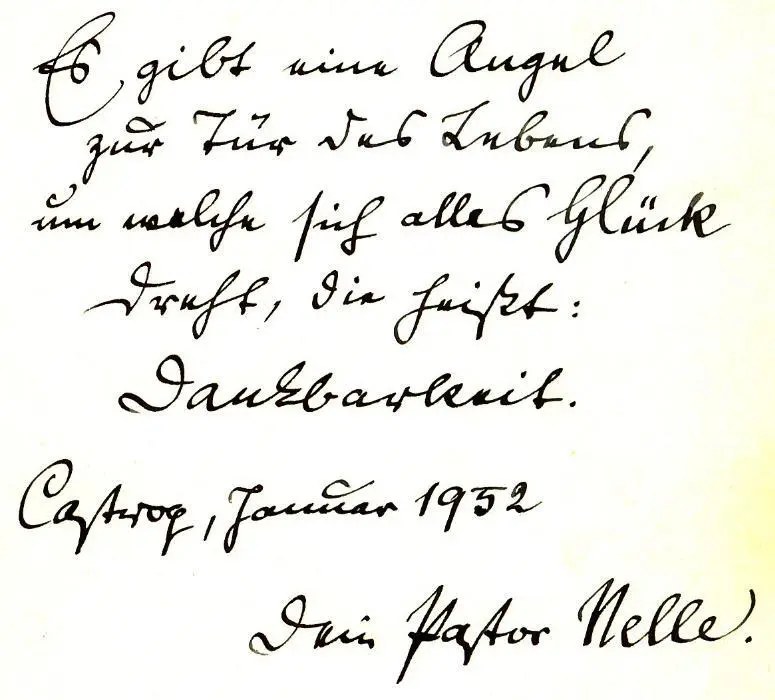 Es gibt eine Angel
zur Tür des Lebens,
um welche sich alles Glück
dreht, die heißt:
Dankbarkeit.
Castrop, Januar 1952
Dein Pastor Nelle.